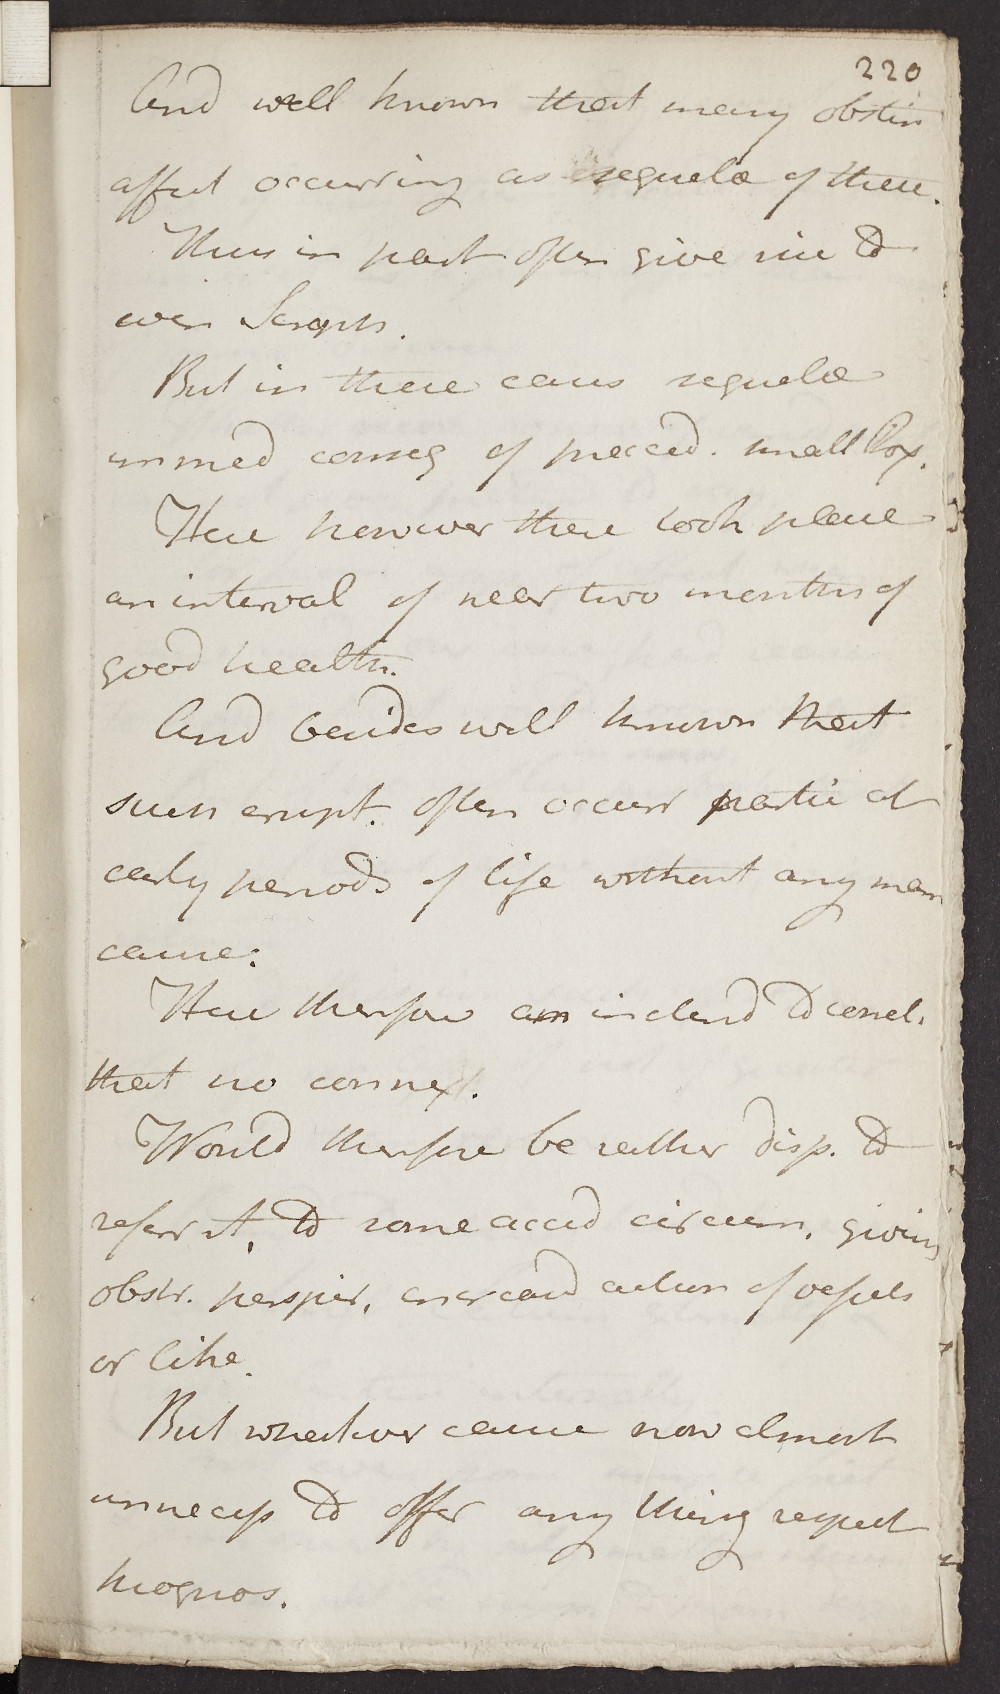 220
And well known that many obstin
affect occurring as sequelæ of these.
Thus in part often give rise to
even Scroph.
But in these cases sequelæ
immed conseq of preced. small Pox.
Here however there took place
an interval of near two months of
good health.
And besides well known that
such erupt. often occurr partic at
early periods of life without any man
cause.
Here therefore am inclend to concl.
that no connex.
Would therefore be rather disp. to
referr it, to some accid circum. giving
obstr. perspir, encreasd action of vessels
or like.
But whatever cause now almost
unnecess to offer any thing respect
prognos.